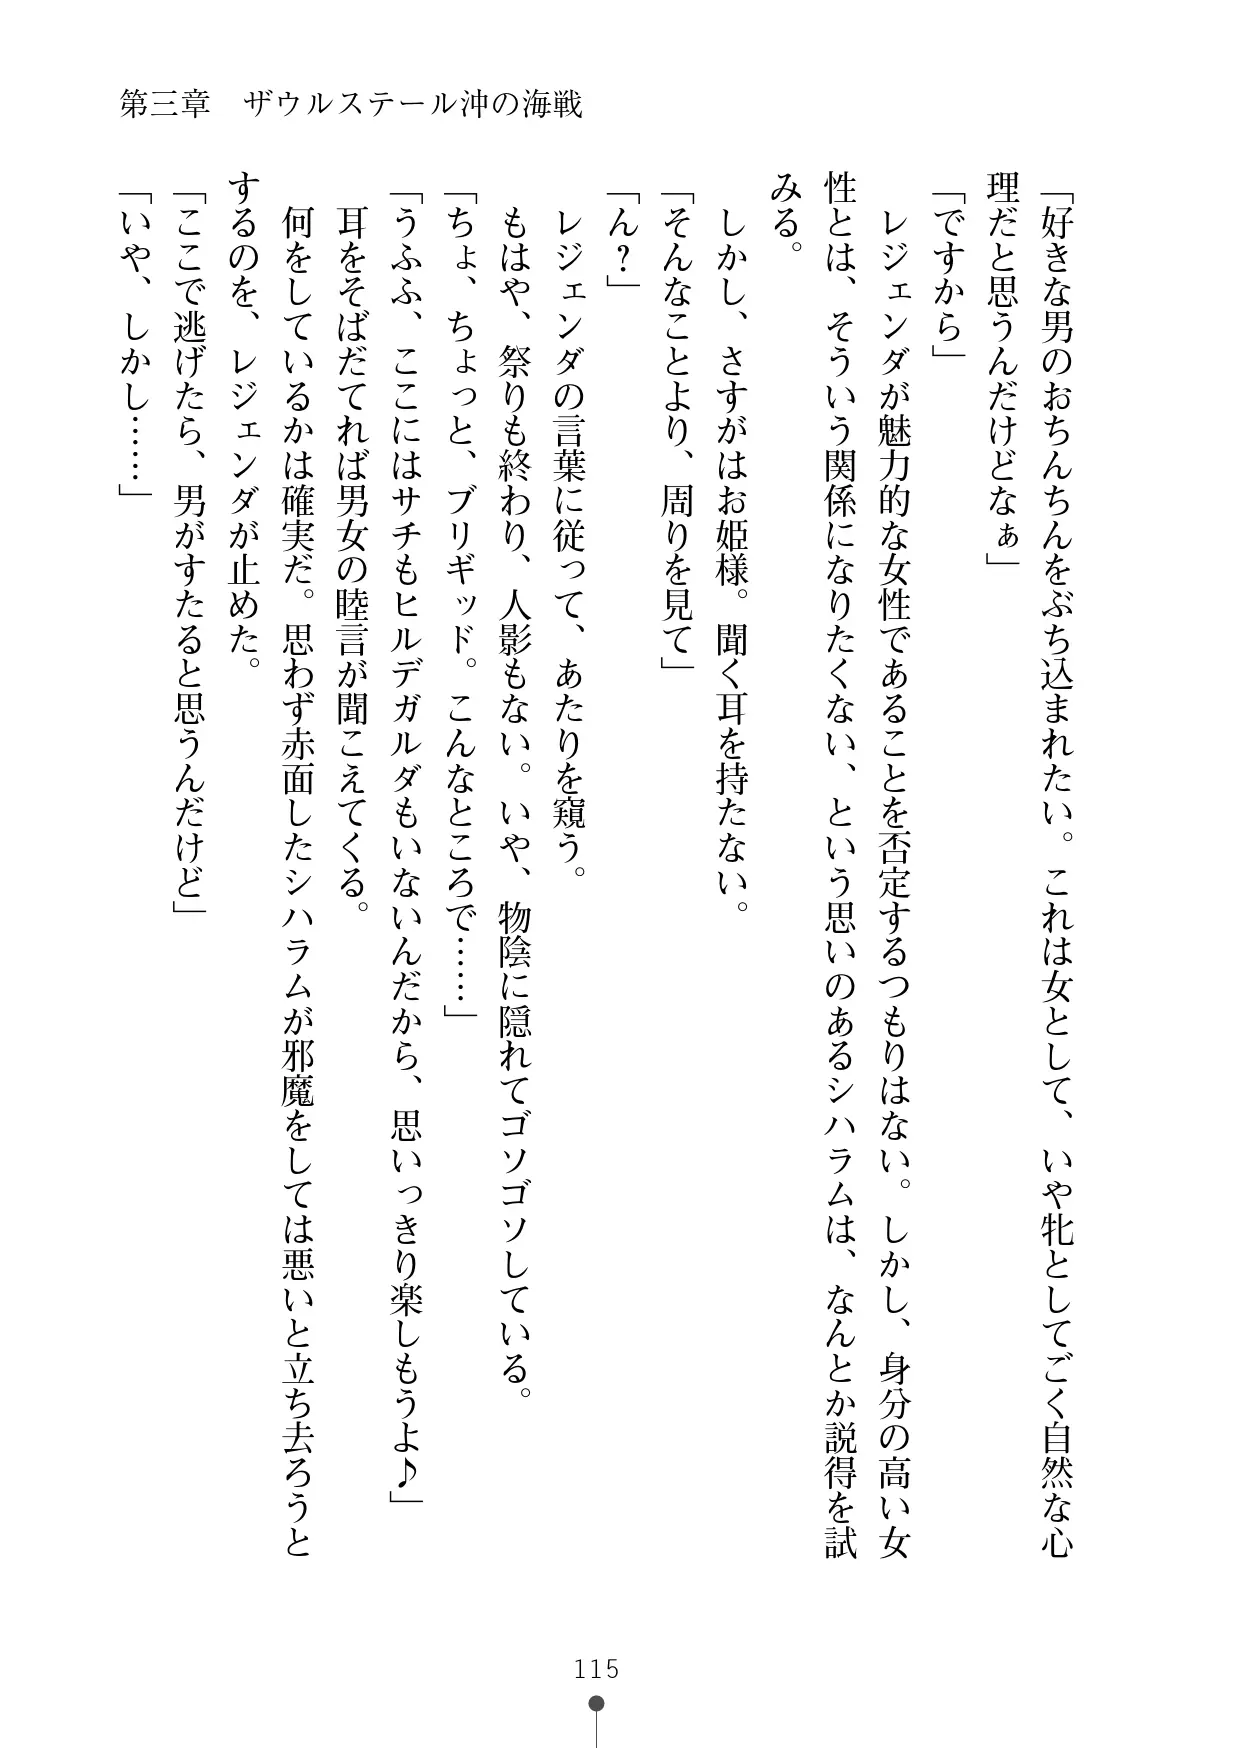 第三章　ザウルステール沖の海戦
「好きな男のおちんちんをぶち込まれたい。これは女として、いや牝としてごく自然な心
理だと思うんだけどなぁ」
「ですから」
　レジェンダが魅力的な女性であることを否定するつもりはない。しかし、身分の高い女
性とは、そういう関係になりたくない、という思いのあるシハラムは、なんとか説得を試
みる。
　しかし、さすがはお姫様。聞く耳を持たない。
「そんなことより、周りを見て」
「ん？」
　レジェンダの言葉に従って、あたりを窺う。
　もはや、祭りも終わり、人影もない。いや、物陰に隠れてゴソゴソしている。
「ちょ、ちょっと、ブリギッド。こんなところで……」
「うふふ、ここにはサチもヒルデガルダもいないんだから、思いっきり楽しもうよ♪」
　耳をそばだてれば男女の睦言が聞こえてくる。
　何をしているかは確実だ。思わず赤面したシハラムが邪魔をしては悪いと立ち去ろうと
するのを、レジェンダが止めた。
「ここで逃げたら、男がすたると思うんだけど」
「いや、しかし……」
115